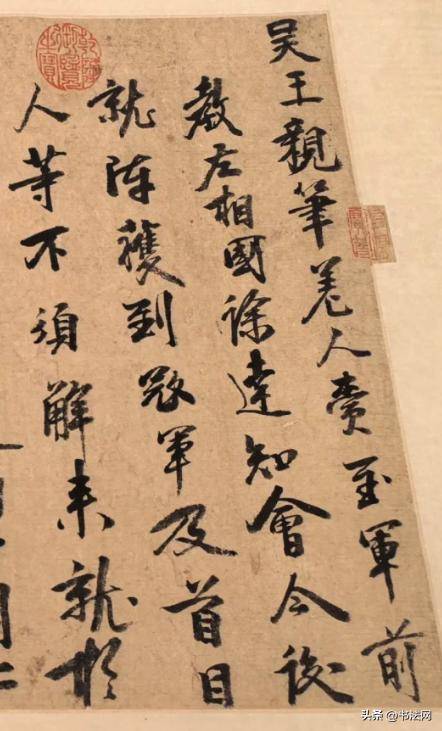 吳王親筆差人賫至軍前
教左相國徐達知會今後
就陣獲到寇軍及首目
人等不須解来就於
乾隆御覽之寶
头条 @书法网